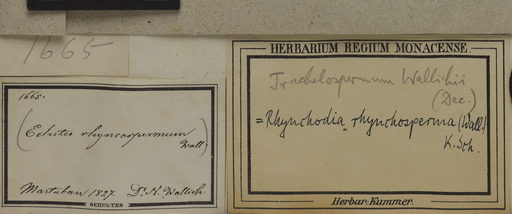 1665
1665.
(Echites rhyncospermum
Wall)
Martaban 1827. Dr. N. Wallich
SCHULTES
HERBARIUM REGIUM MONACENSE.
Trachelospermum Wallichii
(Dec.)
= Rhynchodia rhynchosperma (Wall.)
K. Sch.
Herbar: Kummer.